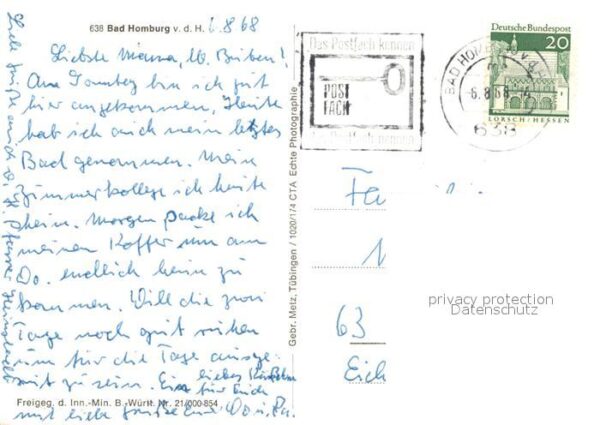 638 Bad Homburg v. d. H. 6.8.68
Liebste Mama, lb. Buben!
Am Sonntag bin ich gut
hier angekommen, Heute
hab ich auch mein letztes
Bad genommen. Mein
Zimmerkollege ich heute
heim. Morgen packe ich
meinen Koffer um am
Do. endlich heim zu
kommen. Will die zwei
Tage noch gut ruhen
um für die Tage ausge-
zu sein. Ein liebes
für Euch
und liebe Grüße Euer
Freigeg. d. Inn.-Min. B.-Württ. Nr. 21/000-854
Liebe Grüße auch
Pfarrer
Gebr. Metz, Tübingen / 1020/1/4 CTA Echte Photographie
Das Postfach kennen
POST
FACH
Deutsche Bundespost
20
LORSCH/HESSEN
BAD HOMBURG v d
-6.8.68-14
638
Fa
1
63
Eich
privacy protection
Datenschutz